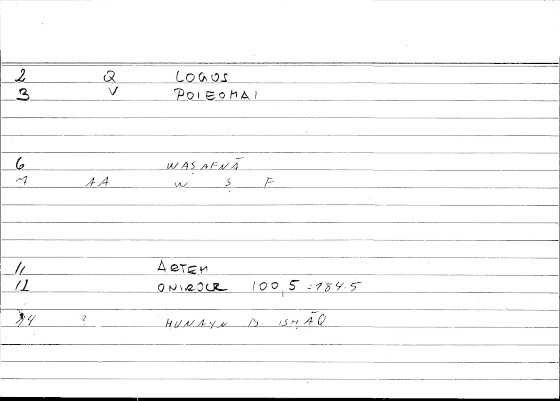 2 Q LOGOS
3 V POIEOMAI
6 WAṢAFNĀ
M AA W Ṣ F
11 ARTEM
12 ONIROCR 100,5 = 184.5
14 ? HUNAYN B ISḤĀQ